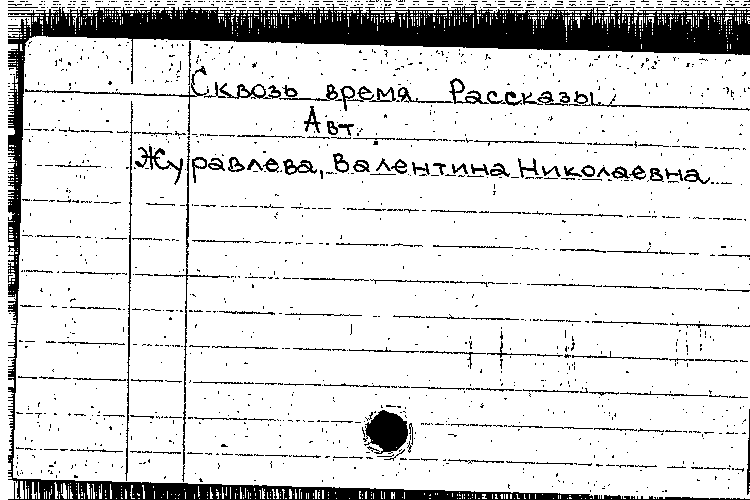 Сквозь время. Рассказы.
Авт.
Журавлева, Валентина Николаевна.